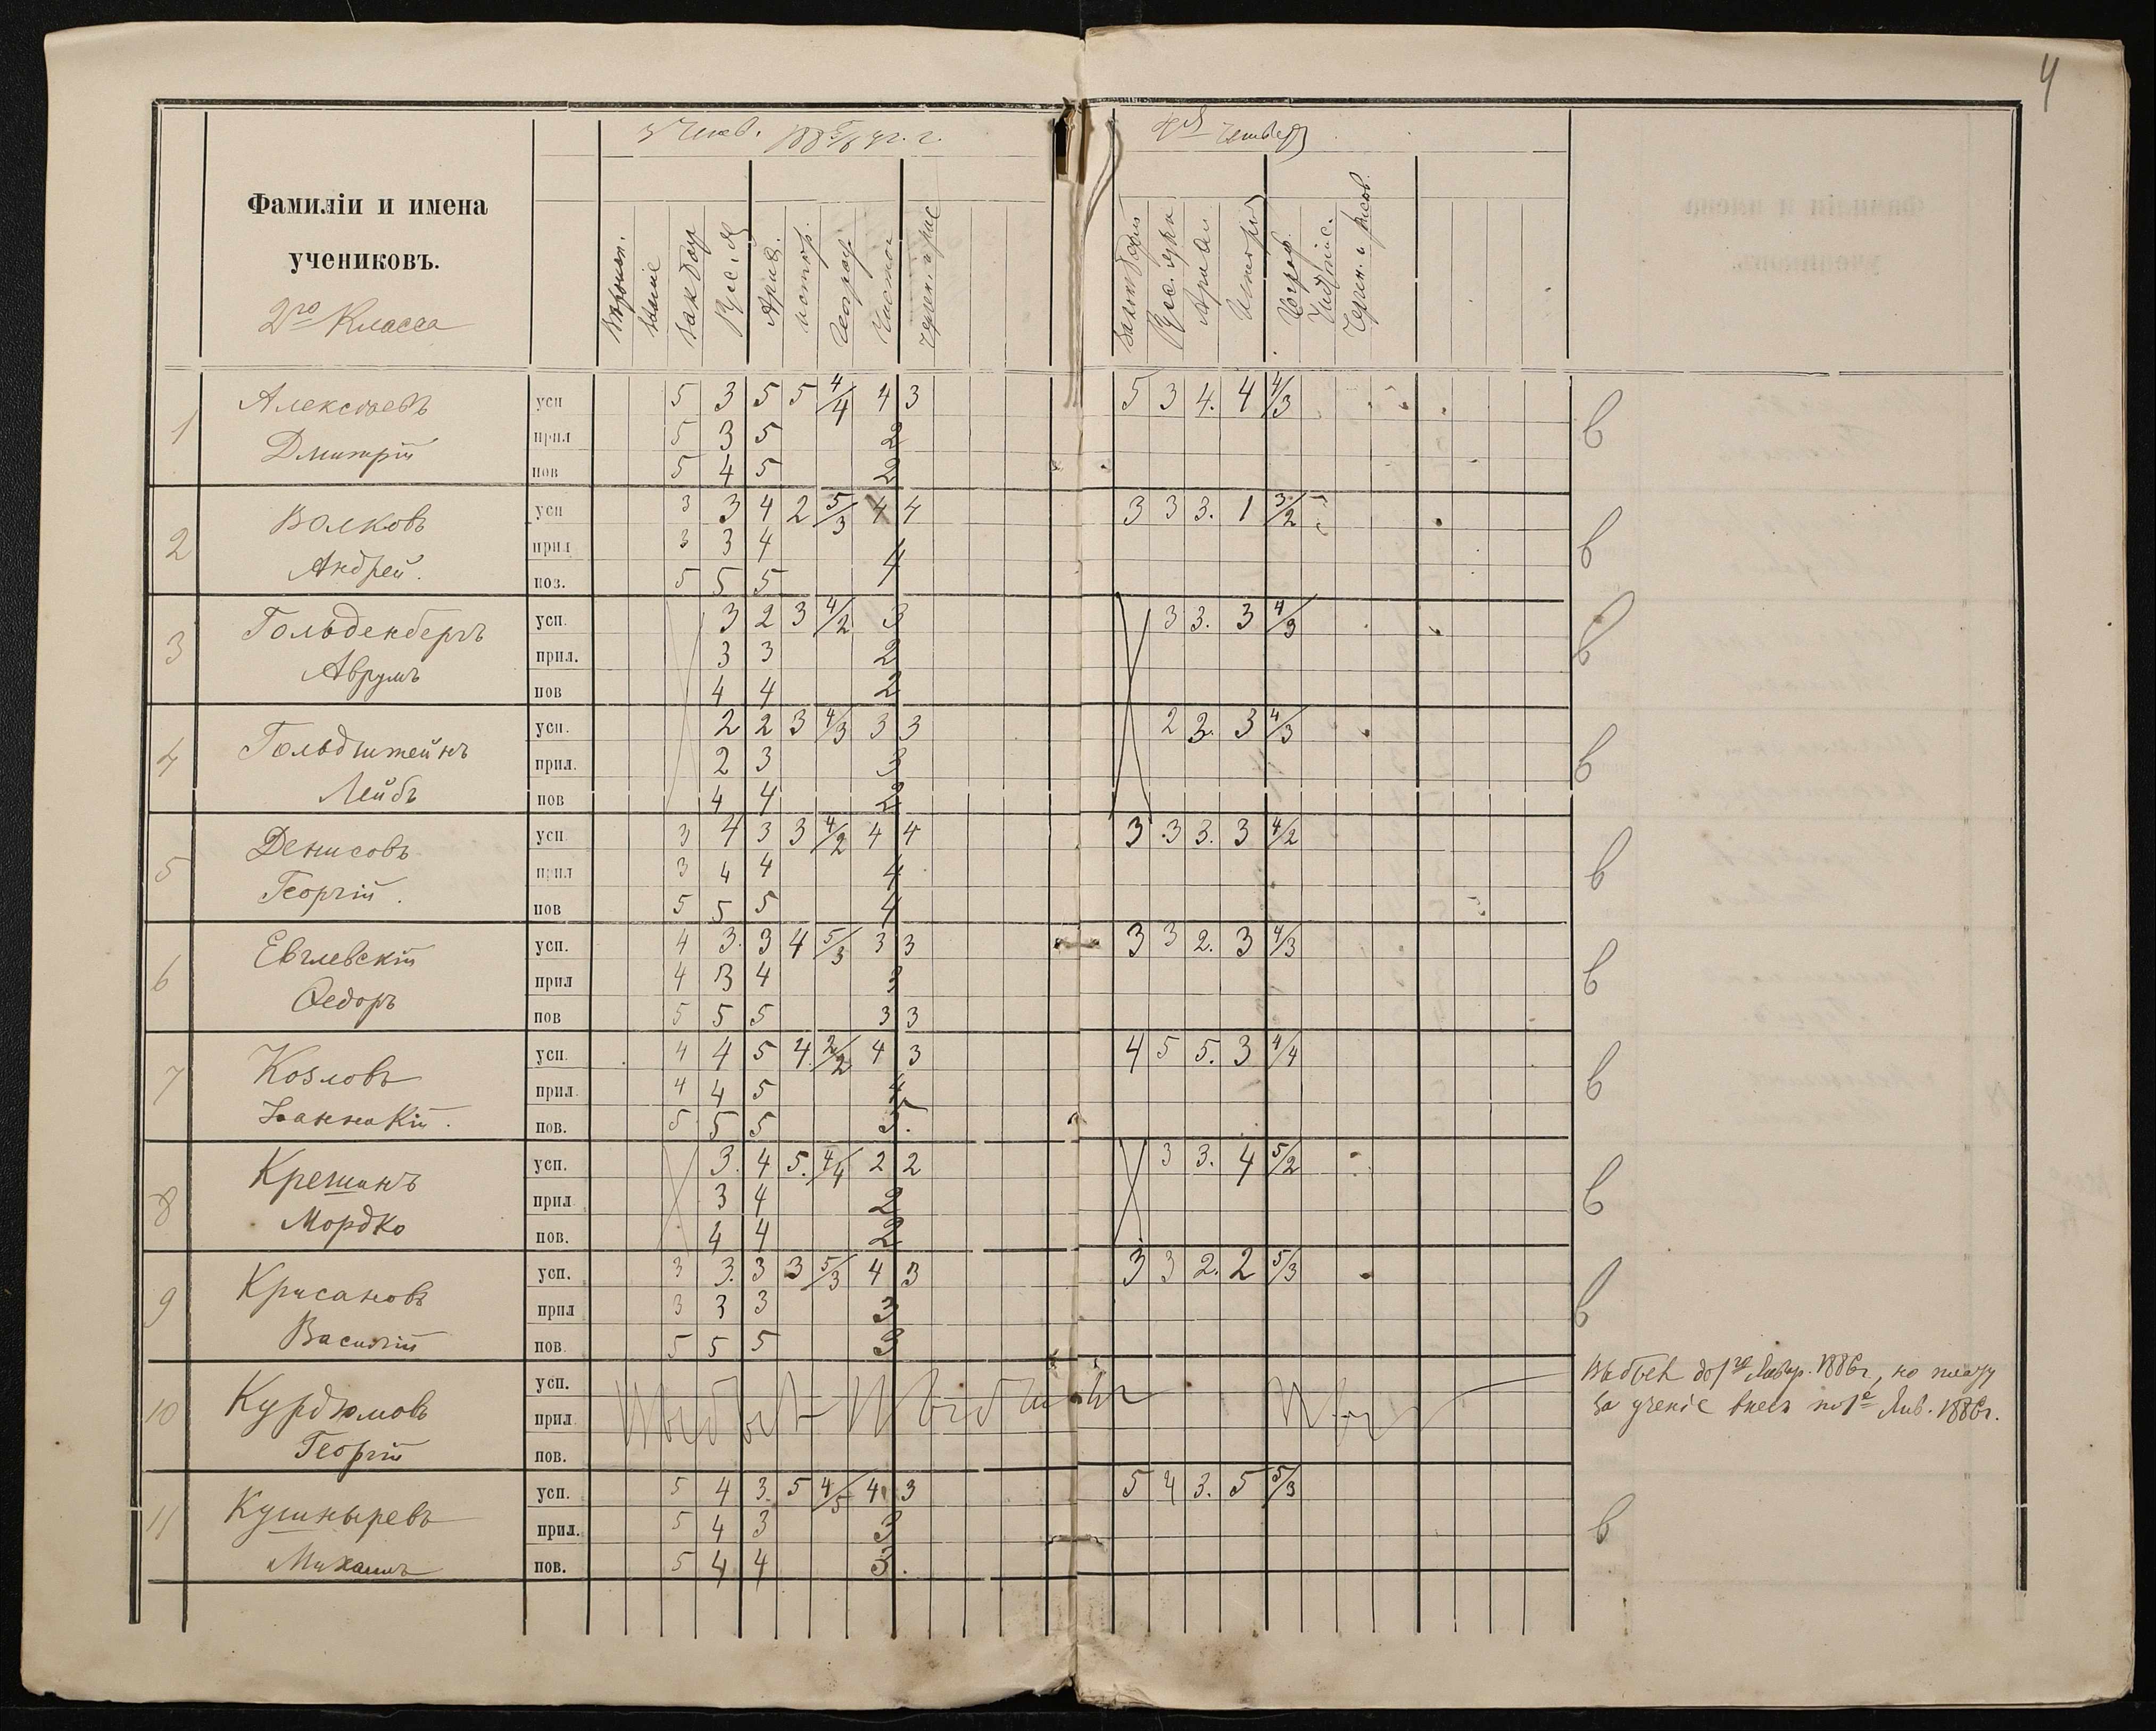 4
3 Четв. 1885/6 уч. г.
4я четверт
Фамиліи и имена
учениковъ.
2го Класса
Зак. бож
Рус. я
Ариѳ.
истор.
Географ
Чистоп
Черчен. и рис
Закон божій
Рус. язык
Истор
Географ.
Чистопис.
Черчен. и рисов.
1 Алексѣевъ усп 5 3 5 5 4/4 4 3 5 3 4. 4 4/3 в
Дмитрій прил 5 3 5 2
пов 5 4 5 2
2 Волковъ усп 3 3 4 2 5/3 4 4 3 3 3. 1 3/2 в
Андрей. прил 3 3 4 4
поз. 5 5 5
3 Гольденбергъ усп. 3 2 3 4/2 3 3 3. 3 4/3 в
Аврумъ прил. 3 3 2
пов 4 4 2
4 Гольдштейнъ усп. 2 2 3 4/3 3 3 2 3. 3 4/3 в
Лейбъ прил. 2 3 3
пов 4 4 2
5 Денисовъ усп 3 4 3 3 4/2 4 4 3 3 3. 3 4/2 в
Георгій. прил 3 4 4 4
пов 5 5 5 4
6 Евглевскій усп. 4 3. 3 4 5/3 3 3 3 3 2. 3 4/3 в
Ѳедоръ прил 4 3 4 3
пов 5 5 5 3 3
7 Козловъ усп. 4 4 5 4. 2/2 4 3 4 5 5. 3 4/4 в
Іоанникій. прил. 4 4 5 4
пов. 5 5 5 5.
8 Крешинъ усп. 3. 4 5. 4/4 2 2 3 3. 4 5/2 в
Мордко прил. 3 4 2
пов. 4 4 2
9 Крисановъ усп. 3 3. 3 3 5/3 4 3 3 3 2. 2 5/3 в
Василій прил 3 3 3 3
пов. 5 5 5 3
10 Курдюмовъ усп. Выбылъ до 1го Январ. 1886г., но плату
Георгій прил. за ученіе внесъ по 1е Янв. 1886г.
пов.
11 Кушныревъ усп. 5 4 3. 5 4/5 4 3 5 4 3. 5 5/3 в
Михаилъ прил. 5 4 3 3
пов. 5 4 4 3.